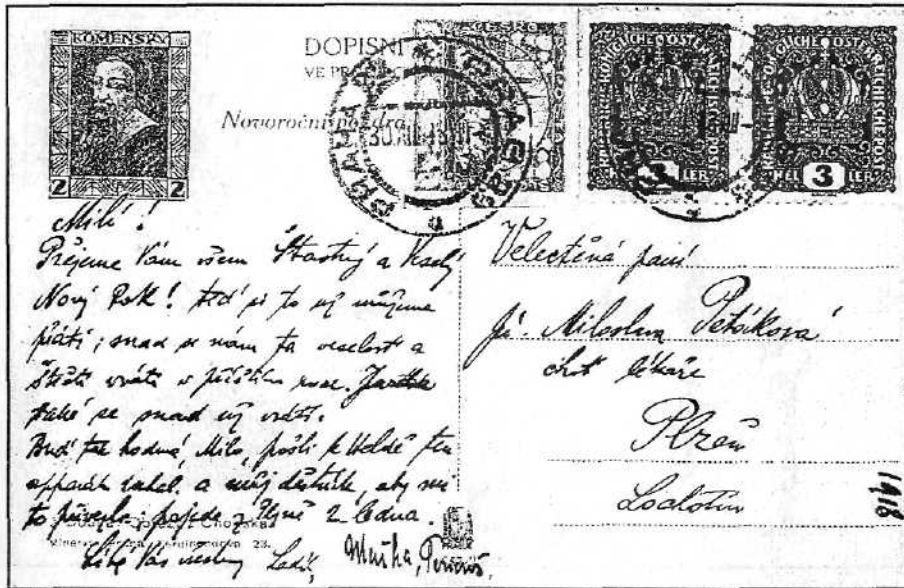 KOMENSKÝ
2 2
DOPISNI
VE PR
Novoroční po dra
PRAHA
30.XII.18
KAIS. KÖNIGLICHE ÖSTERREICHISCHE POST
3
HELLER
KAIS. KÖNIGLICHE ÖSTERREICHISCHE POST
3
HELLER
Milí!
Přejeme Vám všem Šťastný a Veselý
Nový Rok! teď si to už můžeme
přáti; snad se nám ta veselost a
štěstí vrátí v příštím roce.
také se snad už vrátí.
Buď tak hodná, Milo, pošli k ten
a můj deštník, aby mi
to přivezla; pojede z Plzně 2. ledna.
Líbá Vás všechny Ladí,
Mařka,
Velectěná paní
Pí. Miloslava Petáková
choť lékaře
Plzeň
Lochotín
1918